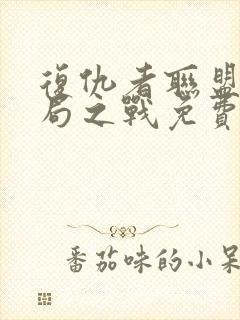 復仇者聯盟
局之戰免費
番茄味的小呆